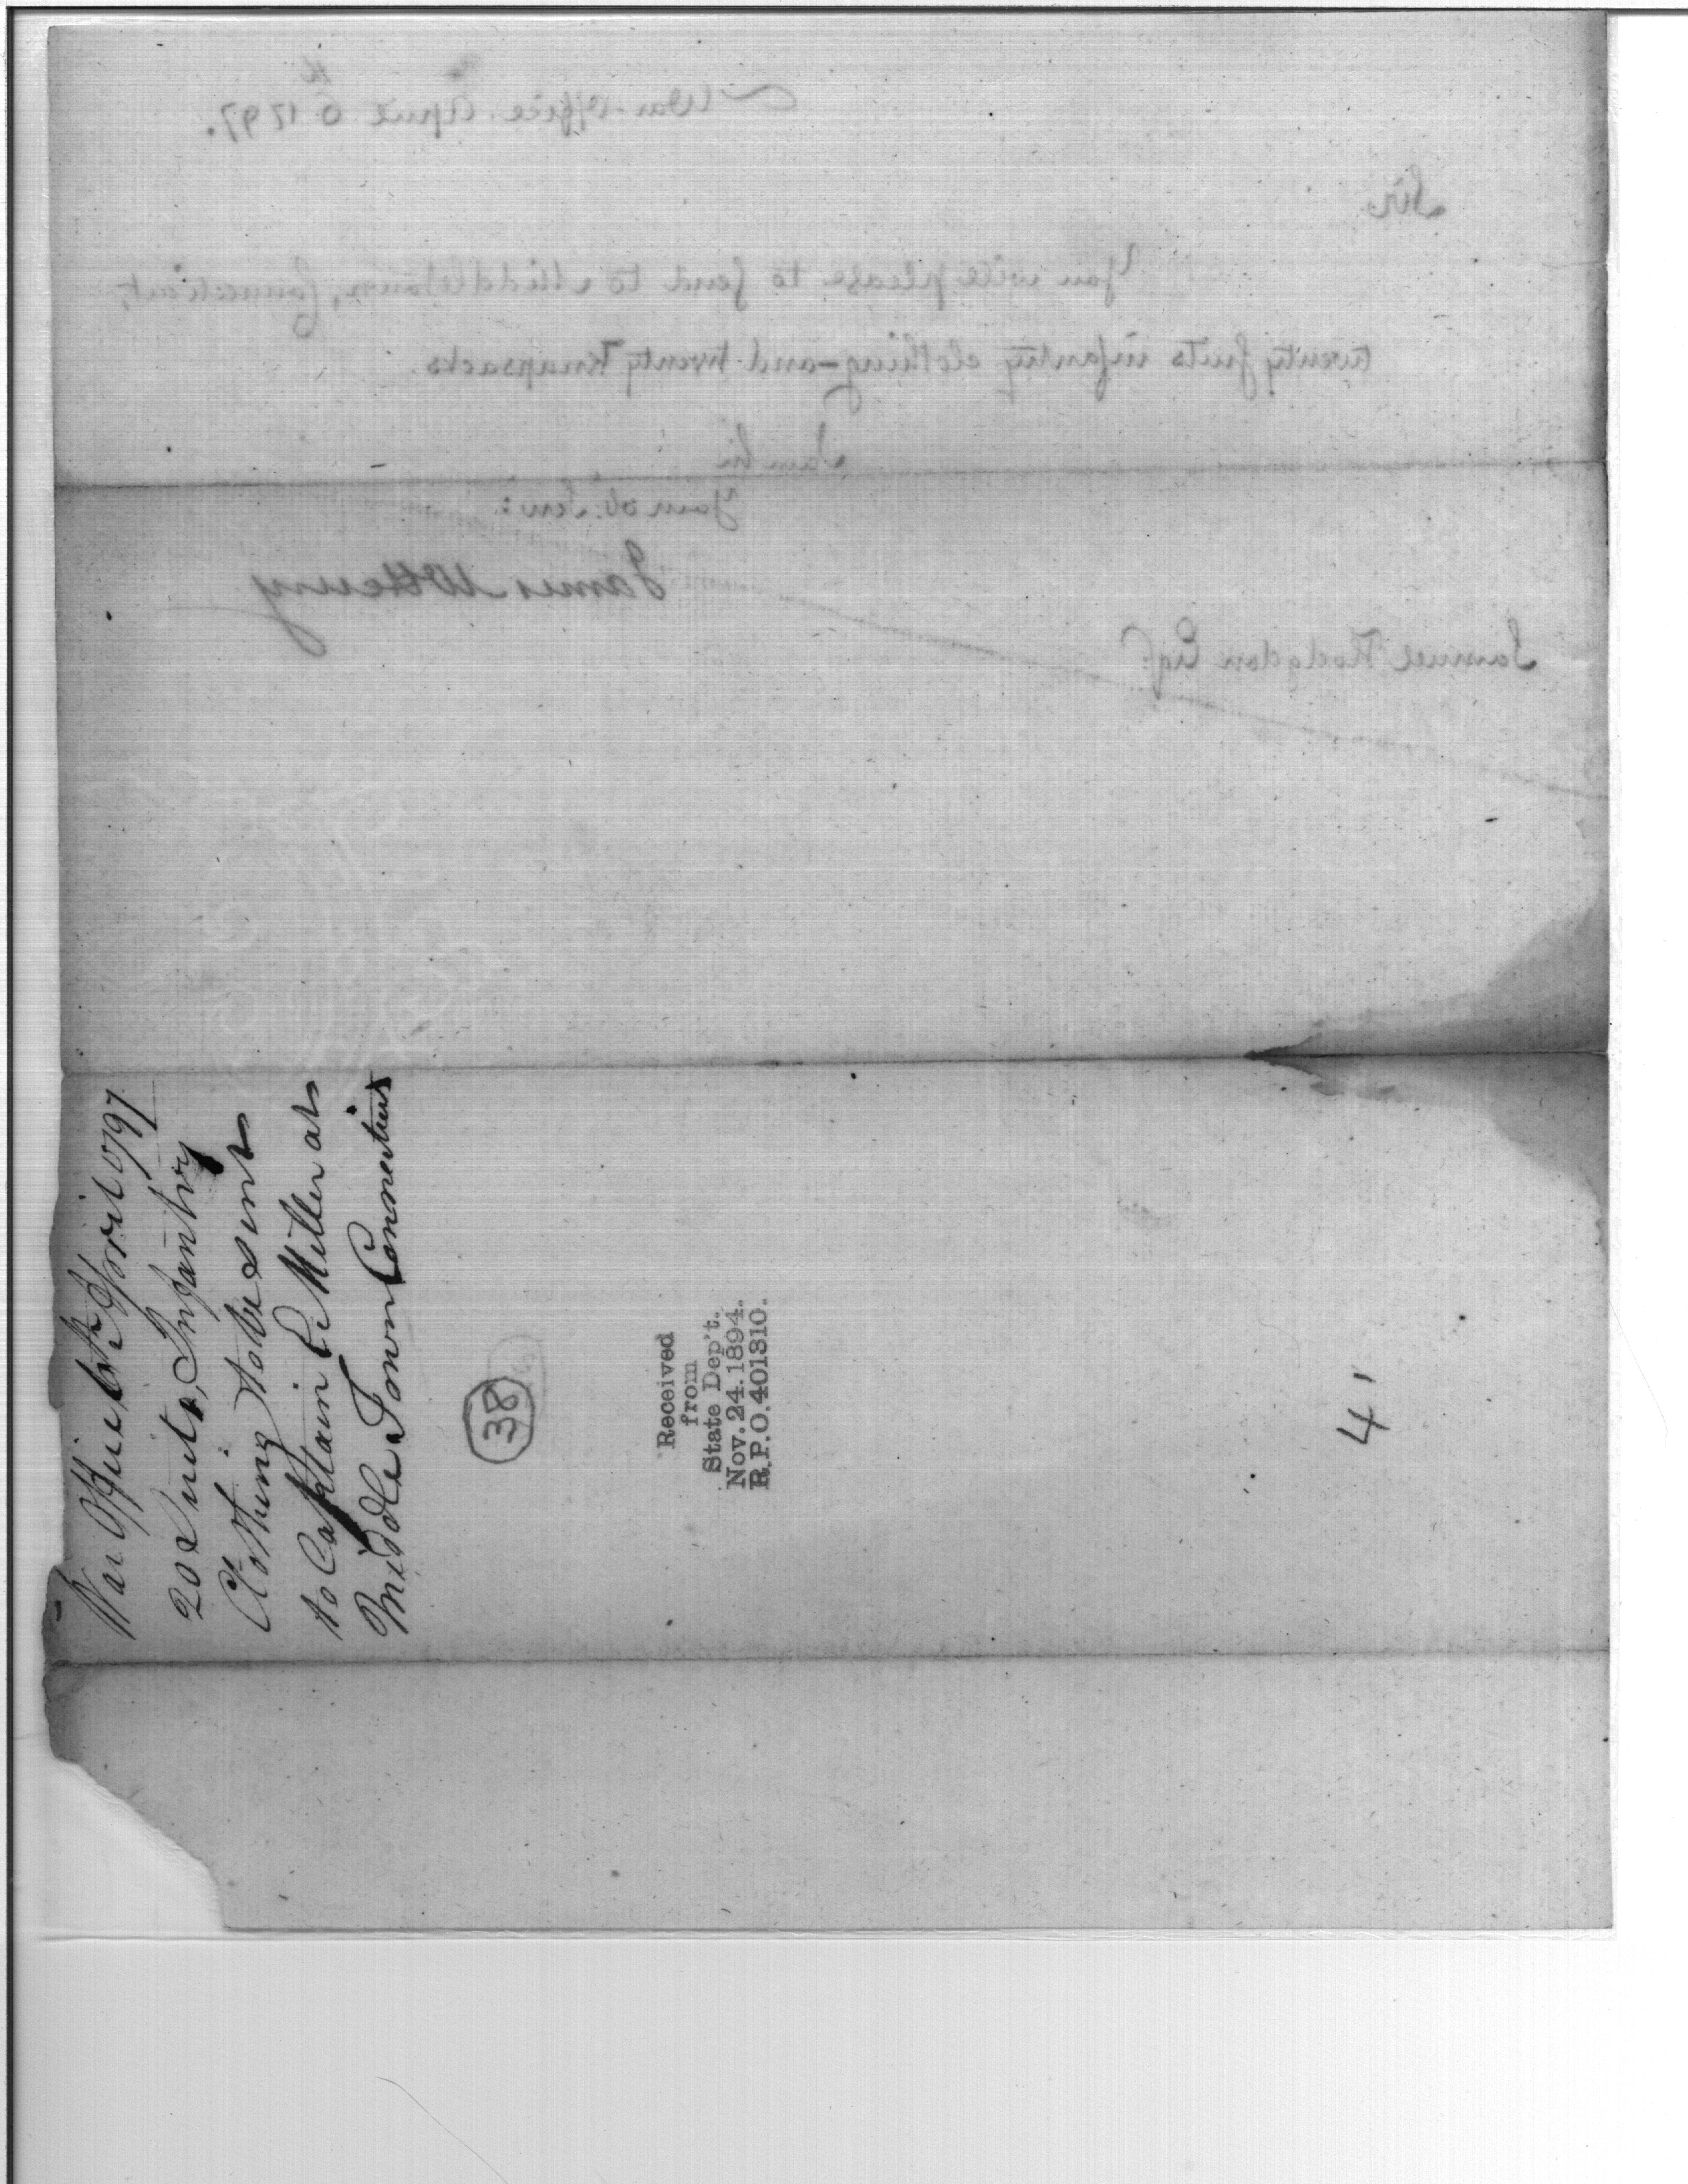 War Office April 6th 1797.
Sir
You will please to send to Middletown, Connecticut,
twenty suits infantry clothing—and twenty Knapsacks.
I am Sir
Your ob: Serv:
James McHenry
Samuel Hodgdon Esqr
War Office 6th April 1797
20 Suits, Infantry
Clothing to be sent
to Captain C Miller at
Middle Town Connecticut
38
Received
from
State Dep't.
Nov. 24. 1894.
R.P.O. 401310.
4'